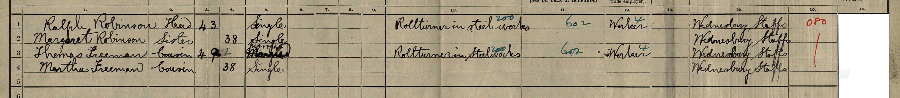 1 Ralph Robinson Head 43 Single Rollturner in steel works 200 602 Worker 4 Wednesbury Staffs 080
2 Margaret Robinson Sister 38 Single Wednesbury Staffs
3 Thomas Freeman cousin 4 Rollturner in Steelworks 602 Worker 4 Wednesbury Staffs
4 Martha Freeman cousin 38 Single Wednesbury Staffs
5